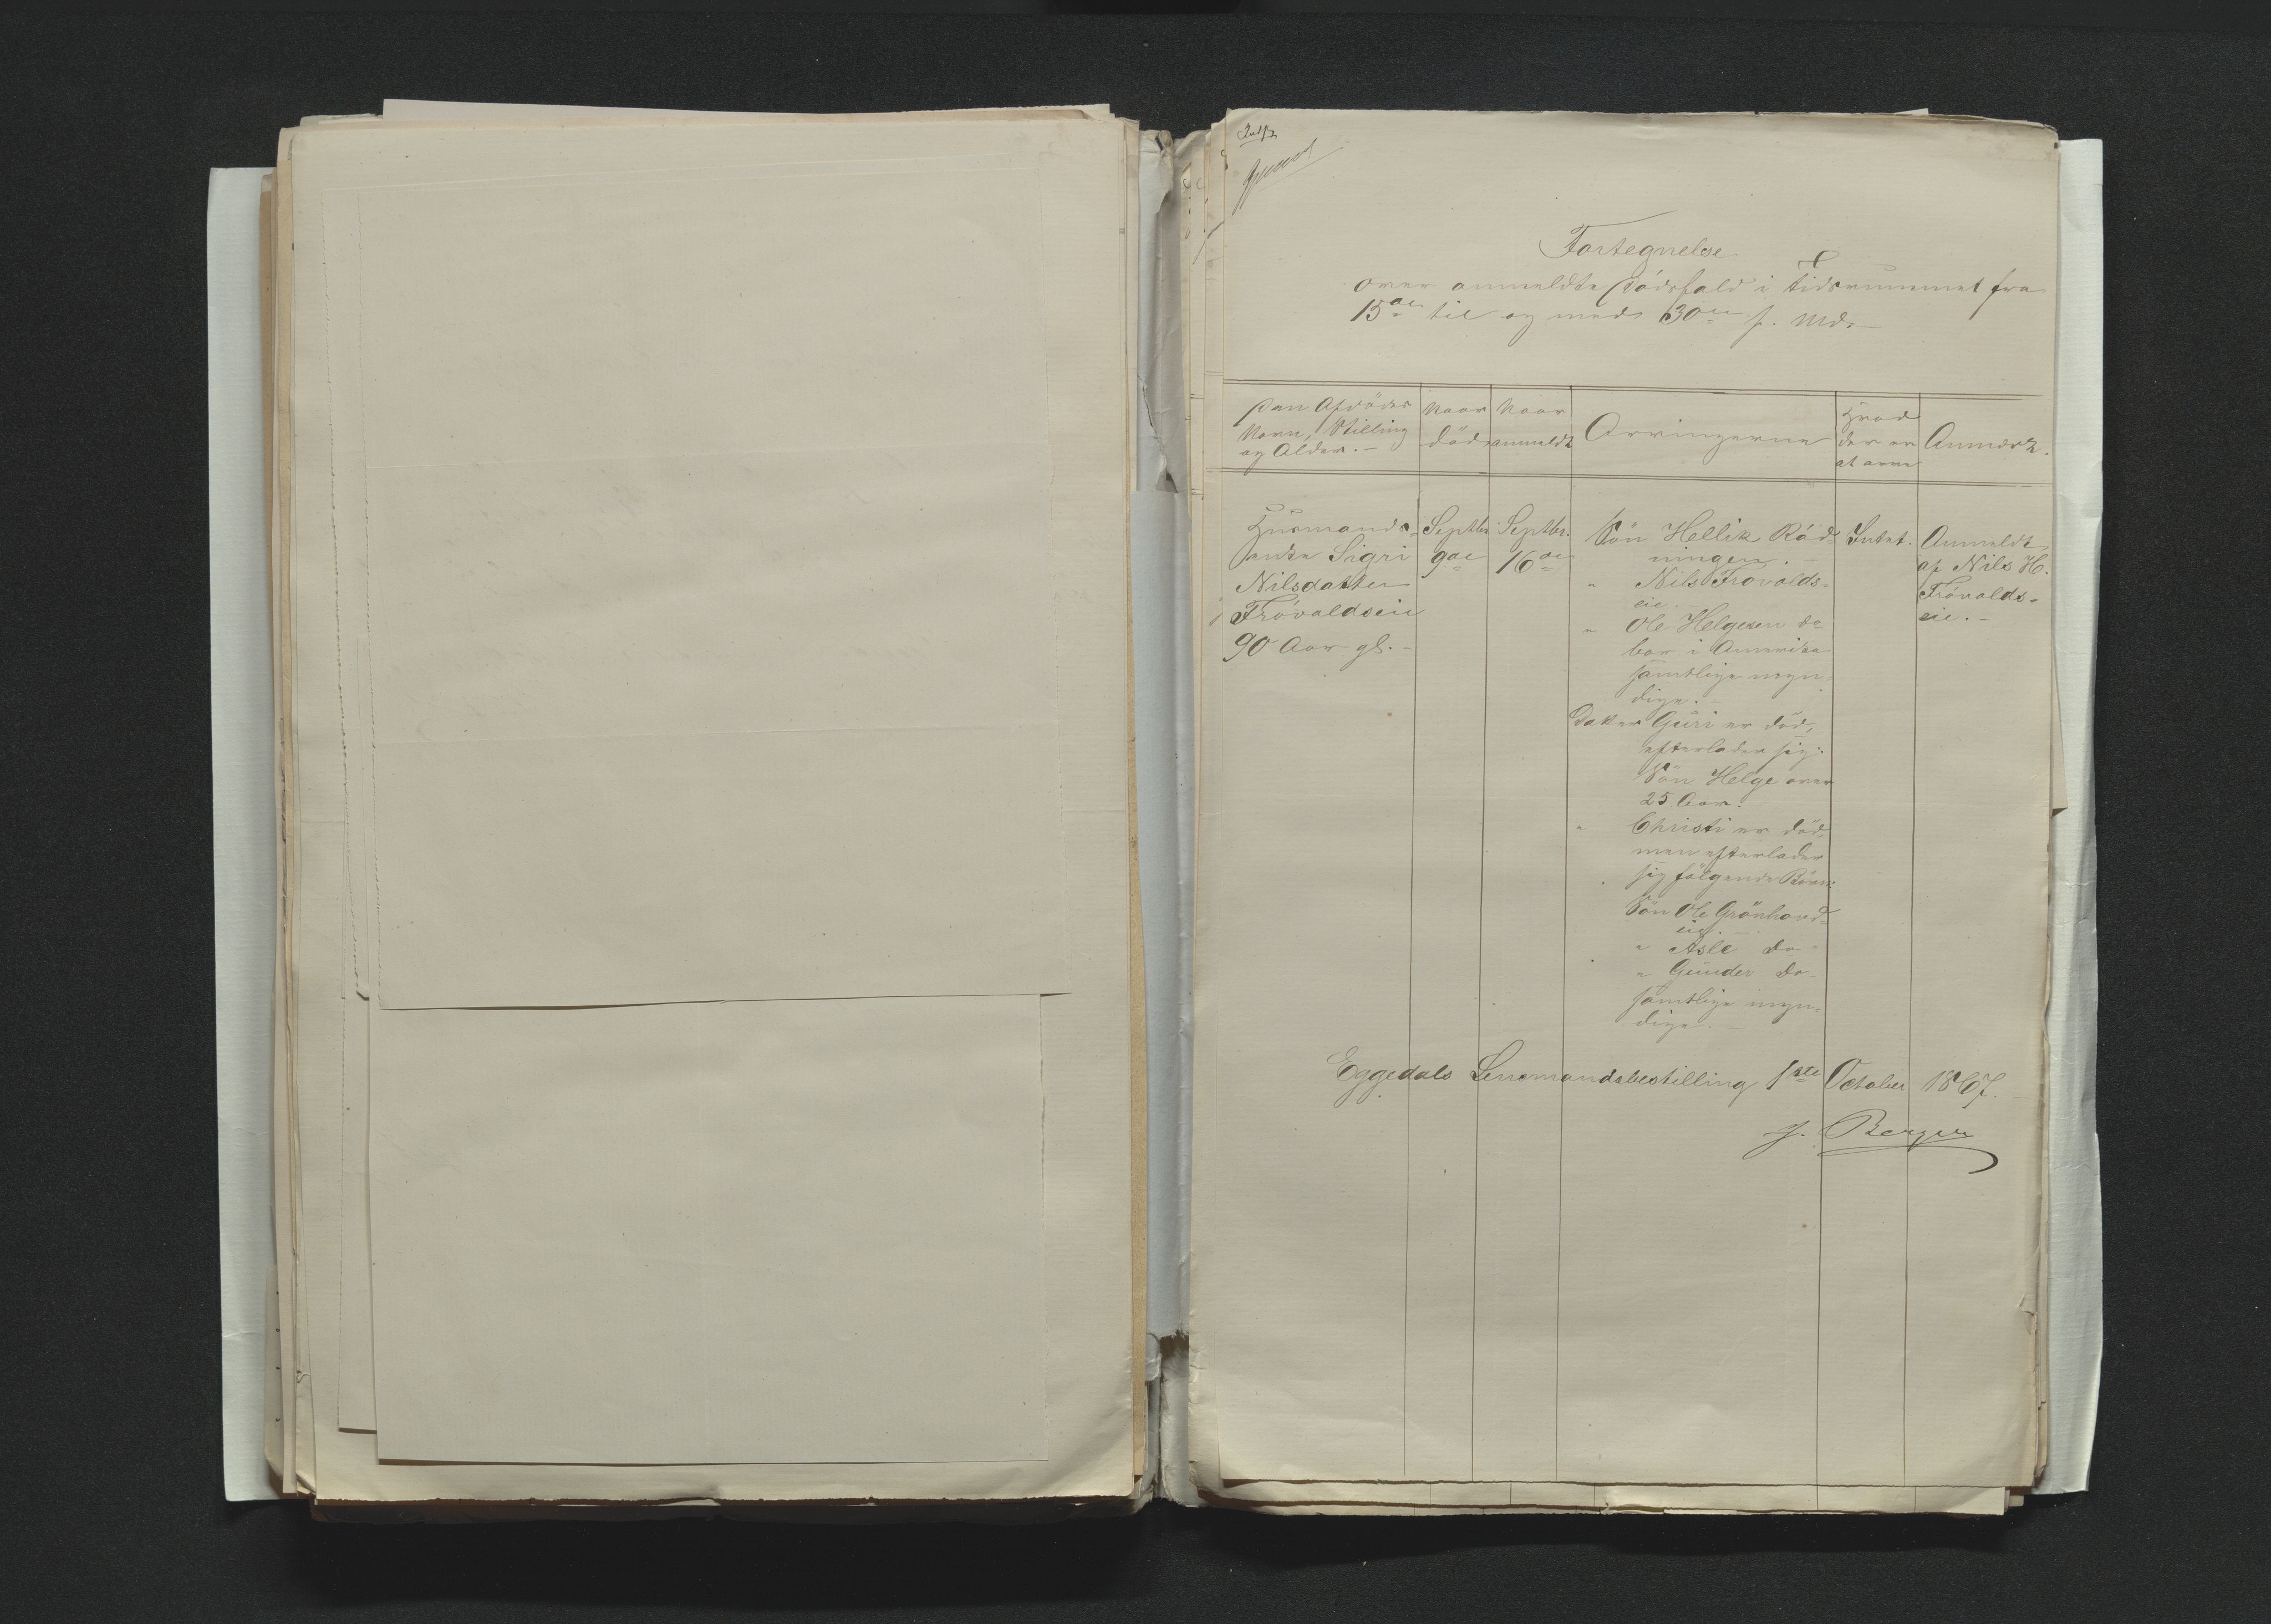 Fortegnelse
over anmeldte Dödsfald i Tidsrummet fra
15de til og med 30te f. Md.
Den Afdödes
Navn, Stilling
og Alder.
Naar
död
Naar
anmeldt
Arvingerne
Hvad
der er
at arve
Anmærk.
Husmands-
enke Sigri
Nilsdatter
Frövaldseie
90 Aar gl.
Septbr
9de
Septbr.
16de
Sön Hellik Röd-
ningen.
" Nils Frövalds-
eie.
" Ole Helgesen der
bor i Amerika
samtlige myn-
dige.
Datter Guri er död,
efterlader sig:
Sön Helge over
25 Aar.
" Christi er död,
men efterlader
sig fölgende Börn:
Sön Ole Grönhovd-
eie.
" Asle do
" Gunder do
samtlige myn-
dige.
Intet.
Anmeldt
af Nils H.
Frövalds-
eie.
Eggedals Lensmandsbestilling 1ste October 1867.
J. Berger